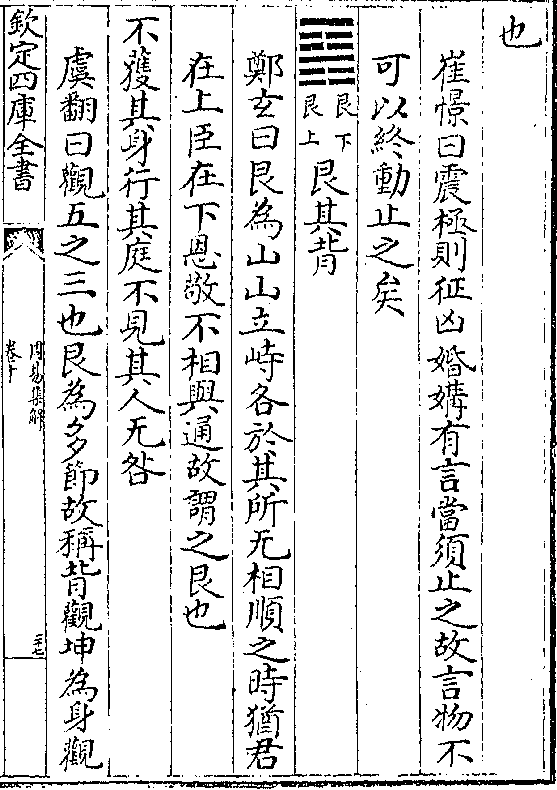 也
崔憬曰震極則征凶婚媾有言當須止之故言物不
可以終動止之矣
艮下艮上 艮其背
鄭玄曰艮為山山立峙各於其所无相順之時猶君
在上臣在下恩敬不相與通故謂之艮也
不獲其身行其庭不見其人无咎
虞翻曰觀五之三也艮為多節故稱背觀坤為身觀
欽定四庫全書
周易集解
卷十
三十七